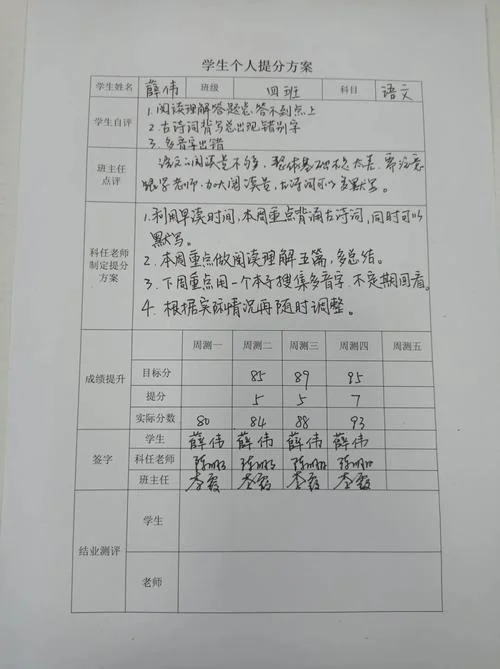 学生个人提分方案
学生姓名 薛伟 班级 四班 科目 语文
学生自评
1.阅读理解答题总答不到点上
2.古诗词背写总出现错别字
3.多音字出错
班主任
点评
语文阅读量不够,整体基础不太差,需注意
跟学老师,加大阅读量,古诗词可以多默写。
科任老师
制定提分
方案
1.利用早读时间,本周重点背诵古诗词,同时可以
默写。
2.本周重点做阅读理解五篇,多总结。
3.下周重点用一个本子搜集多音字 不定期间看。
4.根据实际情况再随时调整。
成绩提升
周测一 周测二 周测三 周测四 周测五
目标分 85 89 95
提分 5 5 7
实际分数 80 84 88 93
签字
学生 薛伟 薛伟 薛伟 薛伟
科任老师
班主任
结业测评
学生
老师